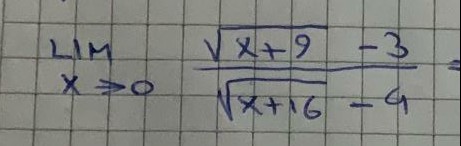 LIM x→0 (√(x+9) - 3) / (√(x+16) - 4) =